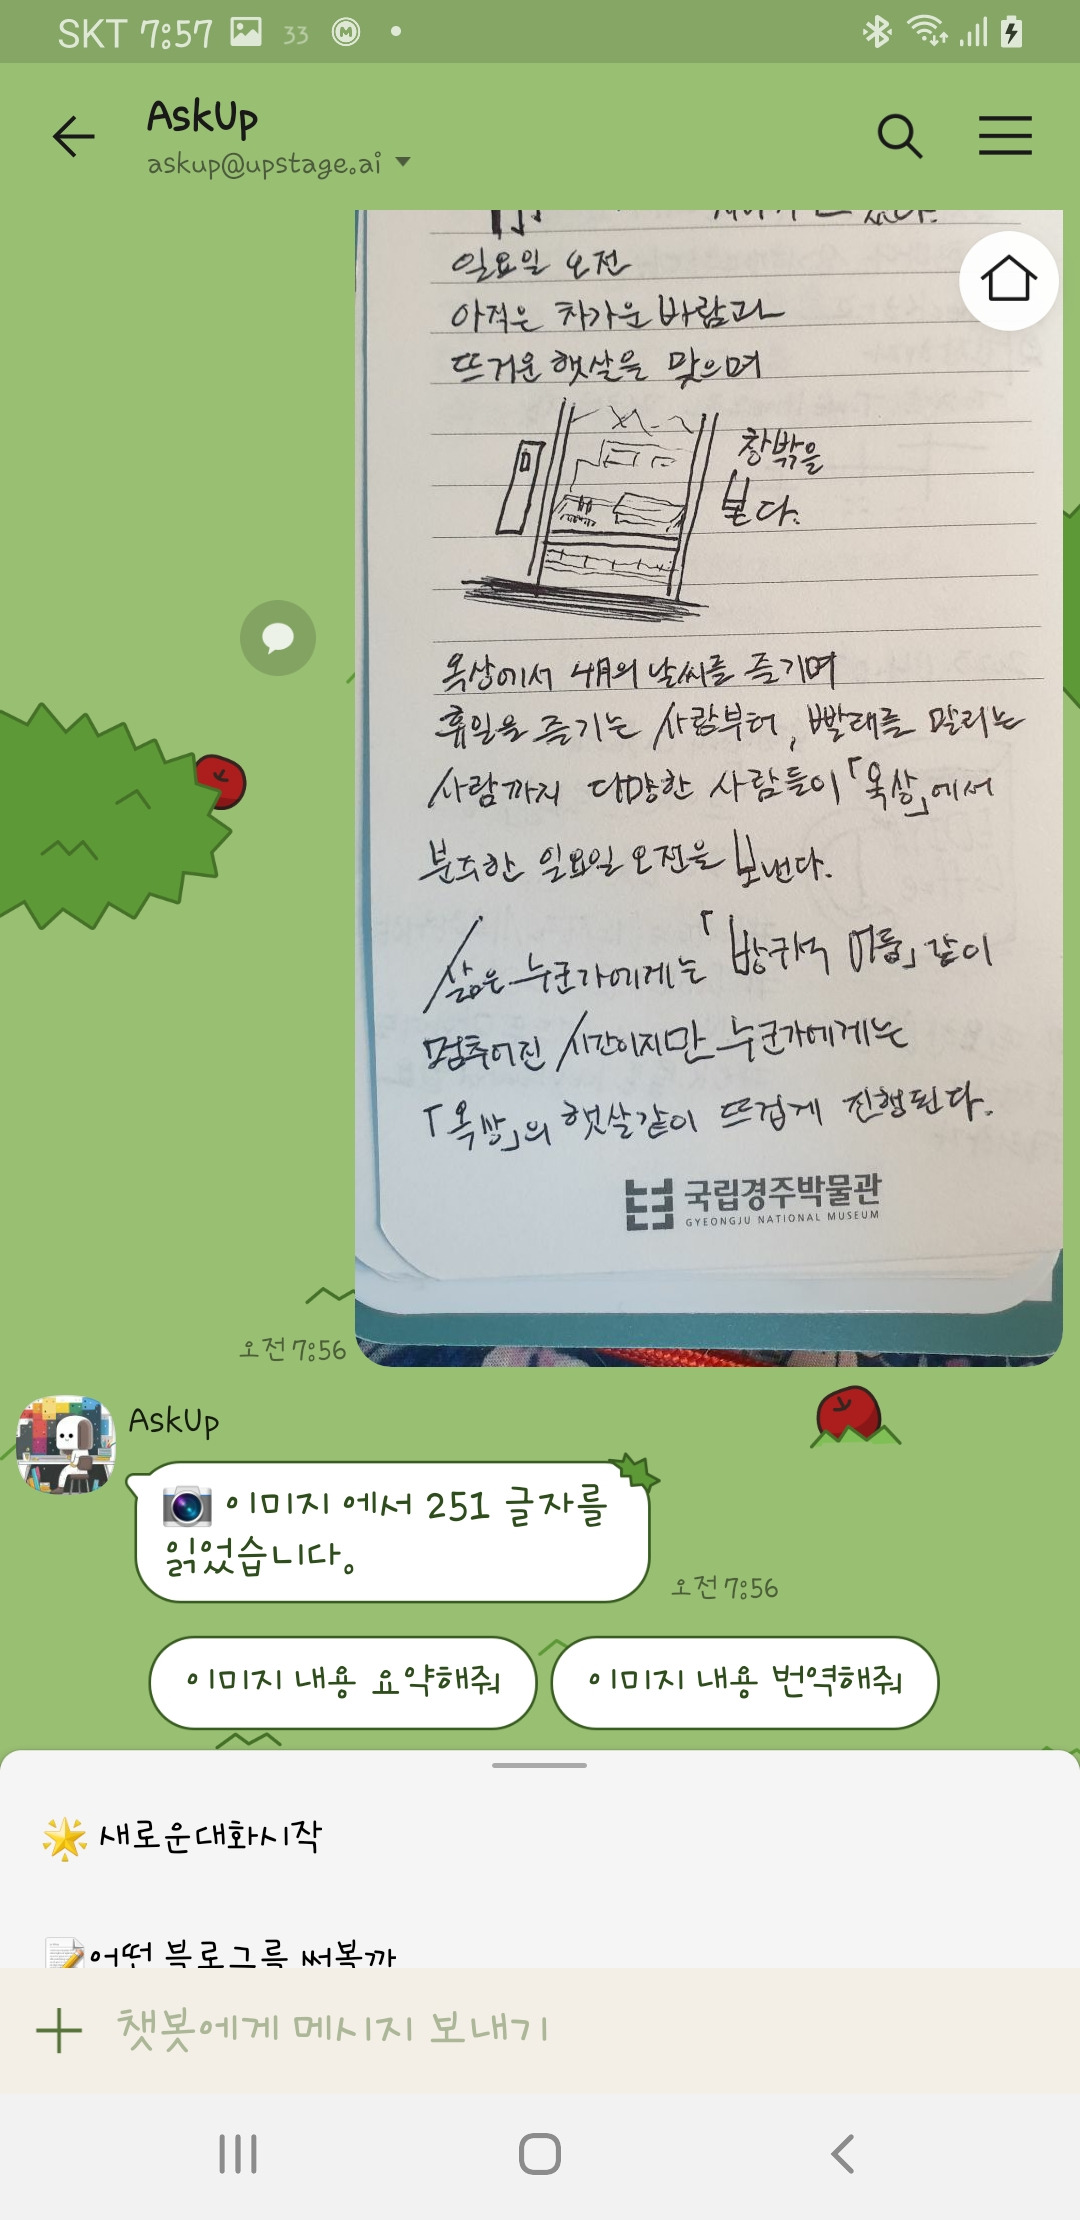 SKT 7:57 33
AskUp
askup@upstage.ai
일요일 오전
아직은 차가운 바람과
뜨거운 햇살을 맞으며
창밖을
본다.
옥상에서 4月의 날씨를 즐기며
휴일을 즐기는 사람부터, 빨래를 말리는
사람까지 다양한 사람들이 「옥상」에서
분주한 일요일 오전을 보낸다.
삶은 누군가에게는 「방구석 며름」 같이
멈추어진 시간이지만 누군가에게는
「옥상」의 햇살같이 뜨겁게 진행된다.
국립경주박물관
GYEONGJU NATIONAL MUSEUM
오전 7:56
AskUp
이미지 에서 251 글자를
읽었습니다.
오전 7:56
이미지 내용 요약해줘
이미지 내용 번역해줘
새로운대화시작
어떤 블로그를 써볼까
챗봇에게 메시지 보내기